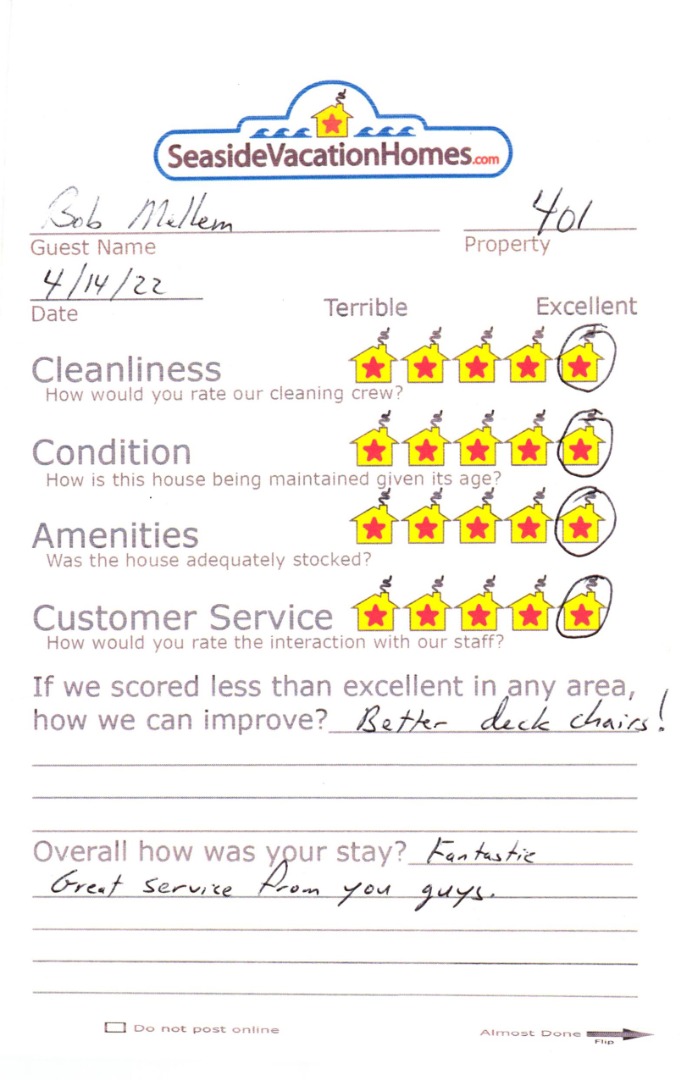 SeasideVacationHomes.com
Bob Mellem 401
Guest Name Property
4/14/22
Date Terrible Excellent
Cleanliness
How would you rate our cleaning crew?
Condition
How is this house being maintained given its age?
Amenities
Was the house adequately stocked?
Customer Service
How would you rate the interaction with our staff?
If we scored less than excellent in any area,
how we can improve? Better deck chairs!
Overall how was your stay? Fantastic
Great service from you guys.
Do not post online Almost Done
Flip